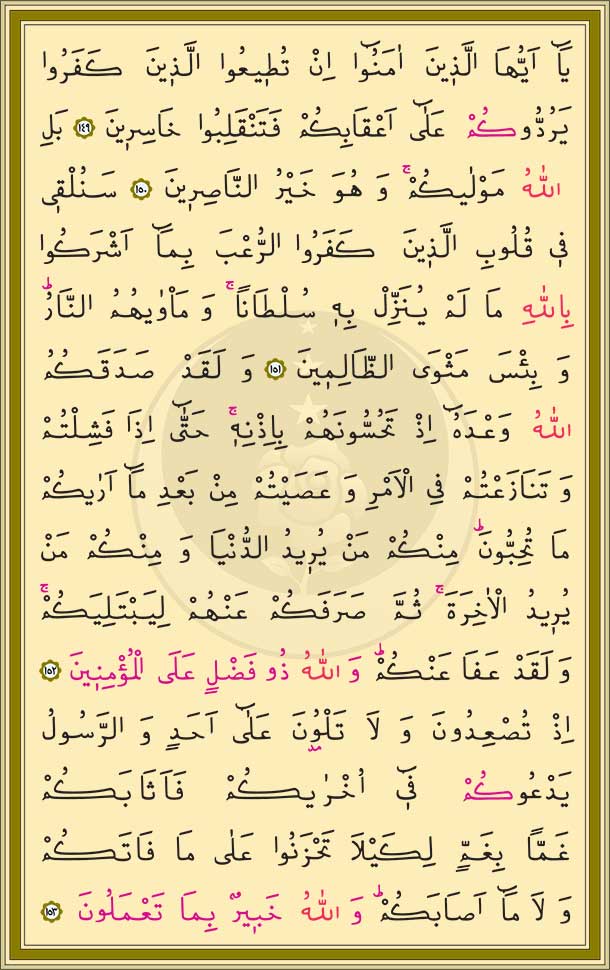 يَٓا اَيُّهَا الَّذ۪ينَ اٰمَنُٓوا اِنْ تُط۪يعُوا الَّذ۪ينَ كَفَرُوا
يَرُدُّوكُمْ عَلٰٓى اَعْقَابِكُمْ فَتَنْقَلِبُوا خَاسِر۪ينَ ﴿١٤٩﴾ بَلِ
اللّٰهُ مَوْلٰيكُمْۚ وَ هُوَ خَيْرُ النَّاصِر۪ينَ ﴿١٥٠﴾ سَنُلْق۪ي
ف۪ي قُلُوبِ الَّذ۪ينَ كَفَرُوا الرُّعْبَ بِمَٓا اَشْرَكُوا
بِاللّٰهِ مَا لَمْ يُنَزِّلْ بِه۪ سُلْطَانًاۚ وَ مَاْوٰيهُمُ النَّارُۜ
وَ بِئْسَ مَثْوَى الظَّالِم۪ينَ ﴿١٥١﴾ وَ لَقَدْ صَدَقَكُمُ
اللّٰهُ وَعْدَهُٓ اِذْ تَحُسُّونَهُمْ بِاِذْنِه۪ۚ حَتّٰٓى اِذَا فَشِلْتُمْ
وَ تَنَازَعْتُمْ فِي الْاَمْرِ وَ عَصَيْتُمْ مِنْ بَعْدِ مَٓا اَرٰيكُمْ
مَا تُحِبُّونَۜ مِنْكُمْ مَنْ يُر۪يدُ الدُّنْيَا وَ مِنْكُمْ مَنْ
يُر۪يدُ الْاٰخِرَةَۚ ثُمَّ صَرَفَكُمْ عَنْهُمْ لِيَبْتَلِيَكُمْۚ
وَ لَقَدْ عَفَا عَنْكُمْۜ وَ اللّٰهُ ذُو فَضْلٍ عَلَى الْمُؤْمِن۪ينَ ﴿١٥٢﴾
اِذْ تُصْعِدُونَ وَ لَا تَلْوُ۫نَ عَلٰٓى اَحَدٍ وَ الرَّسُولُ
يَدْعُوكُمْ ف۪ٓي اُخْرٰيكُمْ فَاَثَابَكُمْ
غَمًّا بِغَمٍّ لِكَيْلَا تَحْزَنُوا عَلٰى مَا فَاتَكُمْ
وَ لَا مَٓا اَصَابَكُمْۜ وَ اللّٰهُ خَب۪يرٌ بِمَا تَعْمَلُونَ ﴿١٥٣﴾